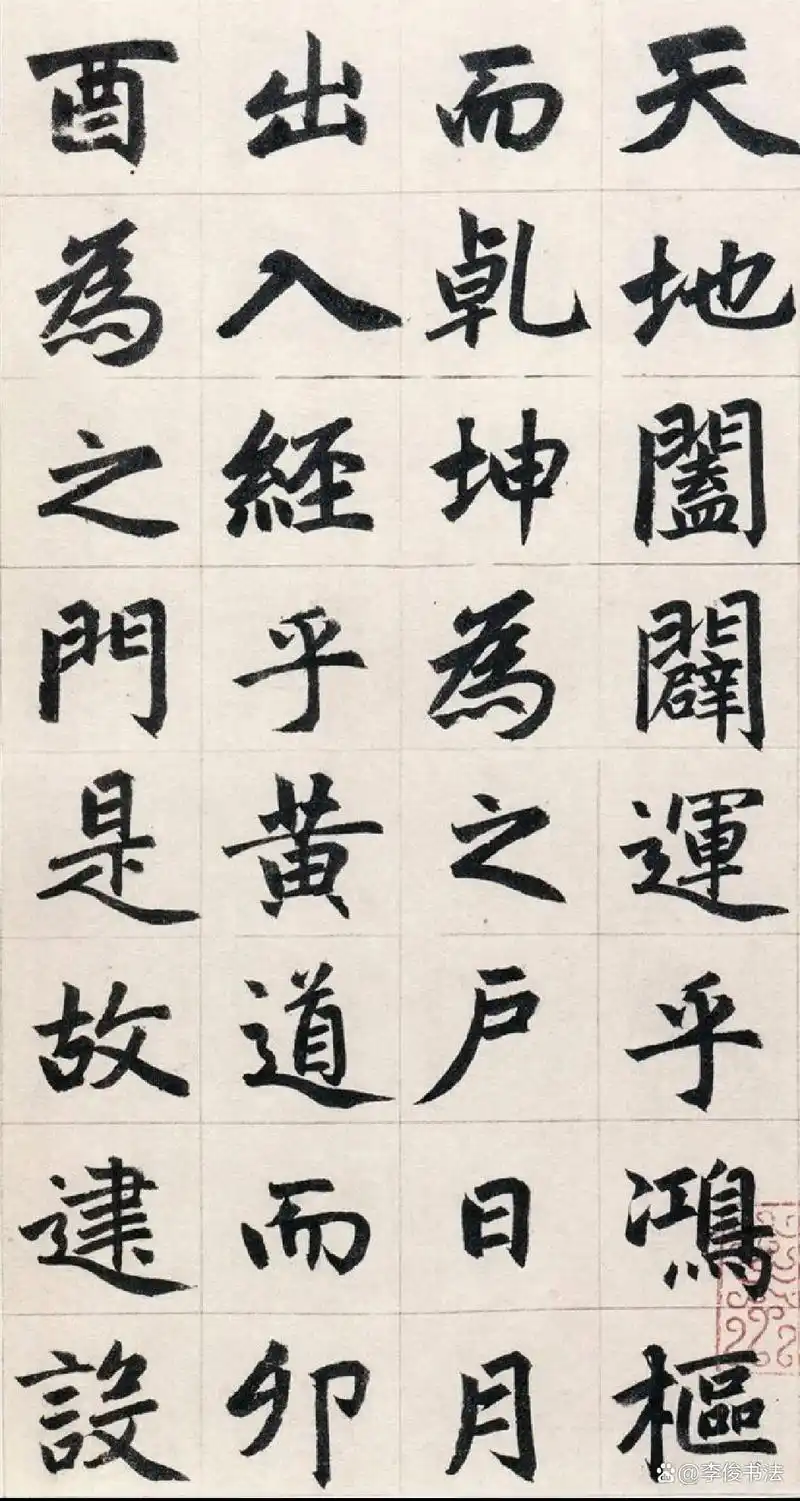 天地闔闢運乎鴻樞
而乹坤為之戶日月
出入經乎黃道而卯
酉為之門是故建設
@李俊书法